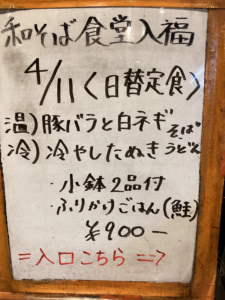 和そば食堂入福
4/11〈日替定食〉
温)豚バラと白ネギそば
冷)冷やしたぬきうどん
・小鉢2品付
・ふりかけごはん(鮭)
¥900ー
⇒入口こちら⇒